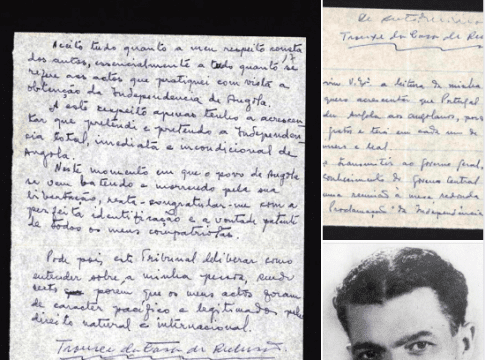 Aceito tudo quanto a meu respeito consta
dos autos, essencialmente a tudo quanto se
refere aos actos que pratiquei com vista à
obtenção da Independencia de Angola.
A este respeito apenas tenho a acrescen-
tar que pretendi e pretendo a Independen-
cia total, imediata e incondicional de
Angola.
Neste momento em que o povo de Angola
se vem batendo e morrendo pela sua
libertação, resta-congratular-me com a
perfeita identificação e a vontade patente
de todos os meus compatriotas.
Pode pois, este Tribunal deliberar como
entender sobre a minha pessoa, sendo
certo porem que os meus actos foram
de caracter pacifico e legitimados pelo
direito natural e internacional.
Trouxe da Casa de Reclusão
De
Trouxe da Casa de Rec
a leitura de minha
quero acrescentar que Portugal
Angola aos angolanos, por
justo e
e leal.
transmitir ao governo geral,
conhecimento do Governo Central
uma reunião à mesa redonda
Proclamação da Independência